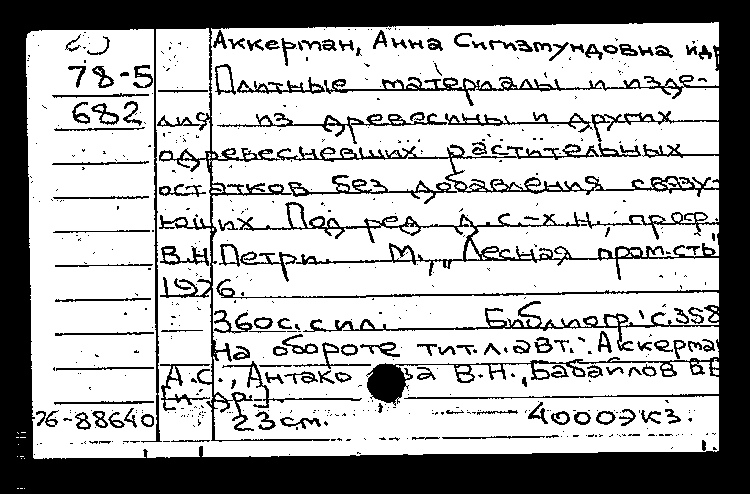 Аккерман, Анна Сигизмундовна и др
78-5 Плитные материалы и изде-
682 лия из древесины и других
одревесневших растительных
остатков без добавления связу-
ющих. Под ред. д.с.-х.н., проф.
В.Н.Петри. М., „Лесная пром-сть"
1976.
360с. с ил. Библиогр.: с.358
На обороте тит.л. авт.: Аккерман
А.С., Антако ва В.Н., Бабайлов В.Е
[и др.].
76-88640 23см. 4000экз.